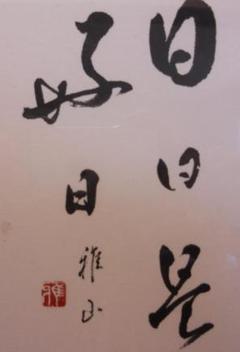 日日是
好日
雅山
雅